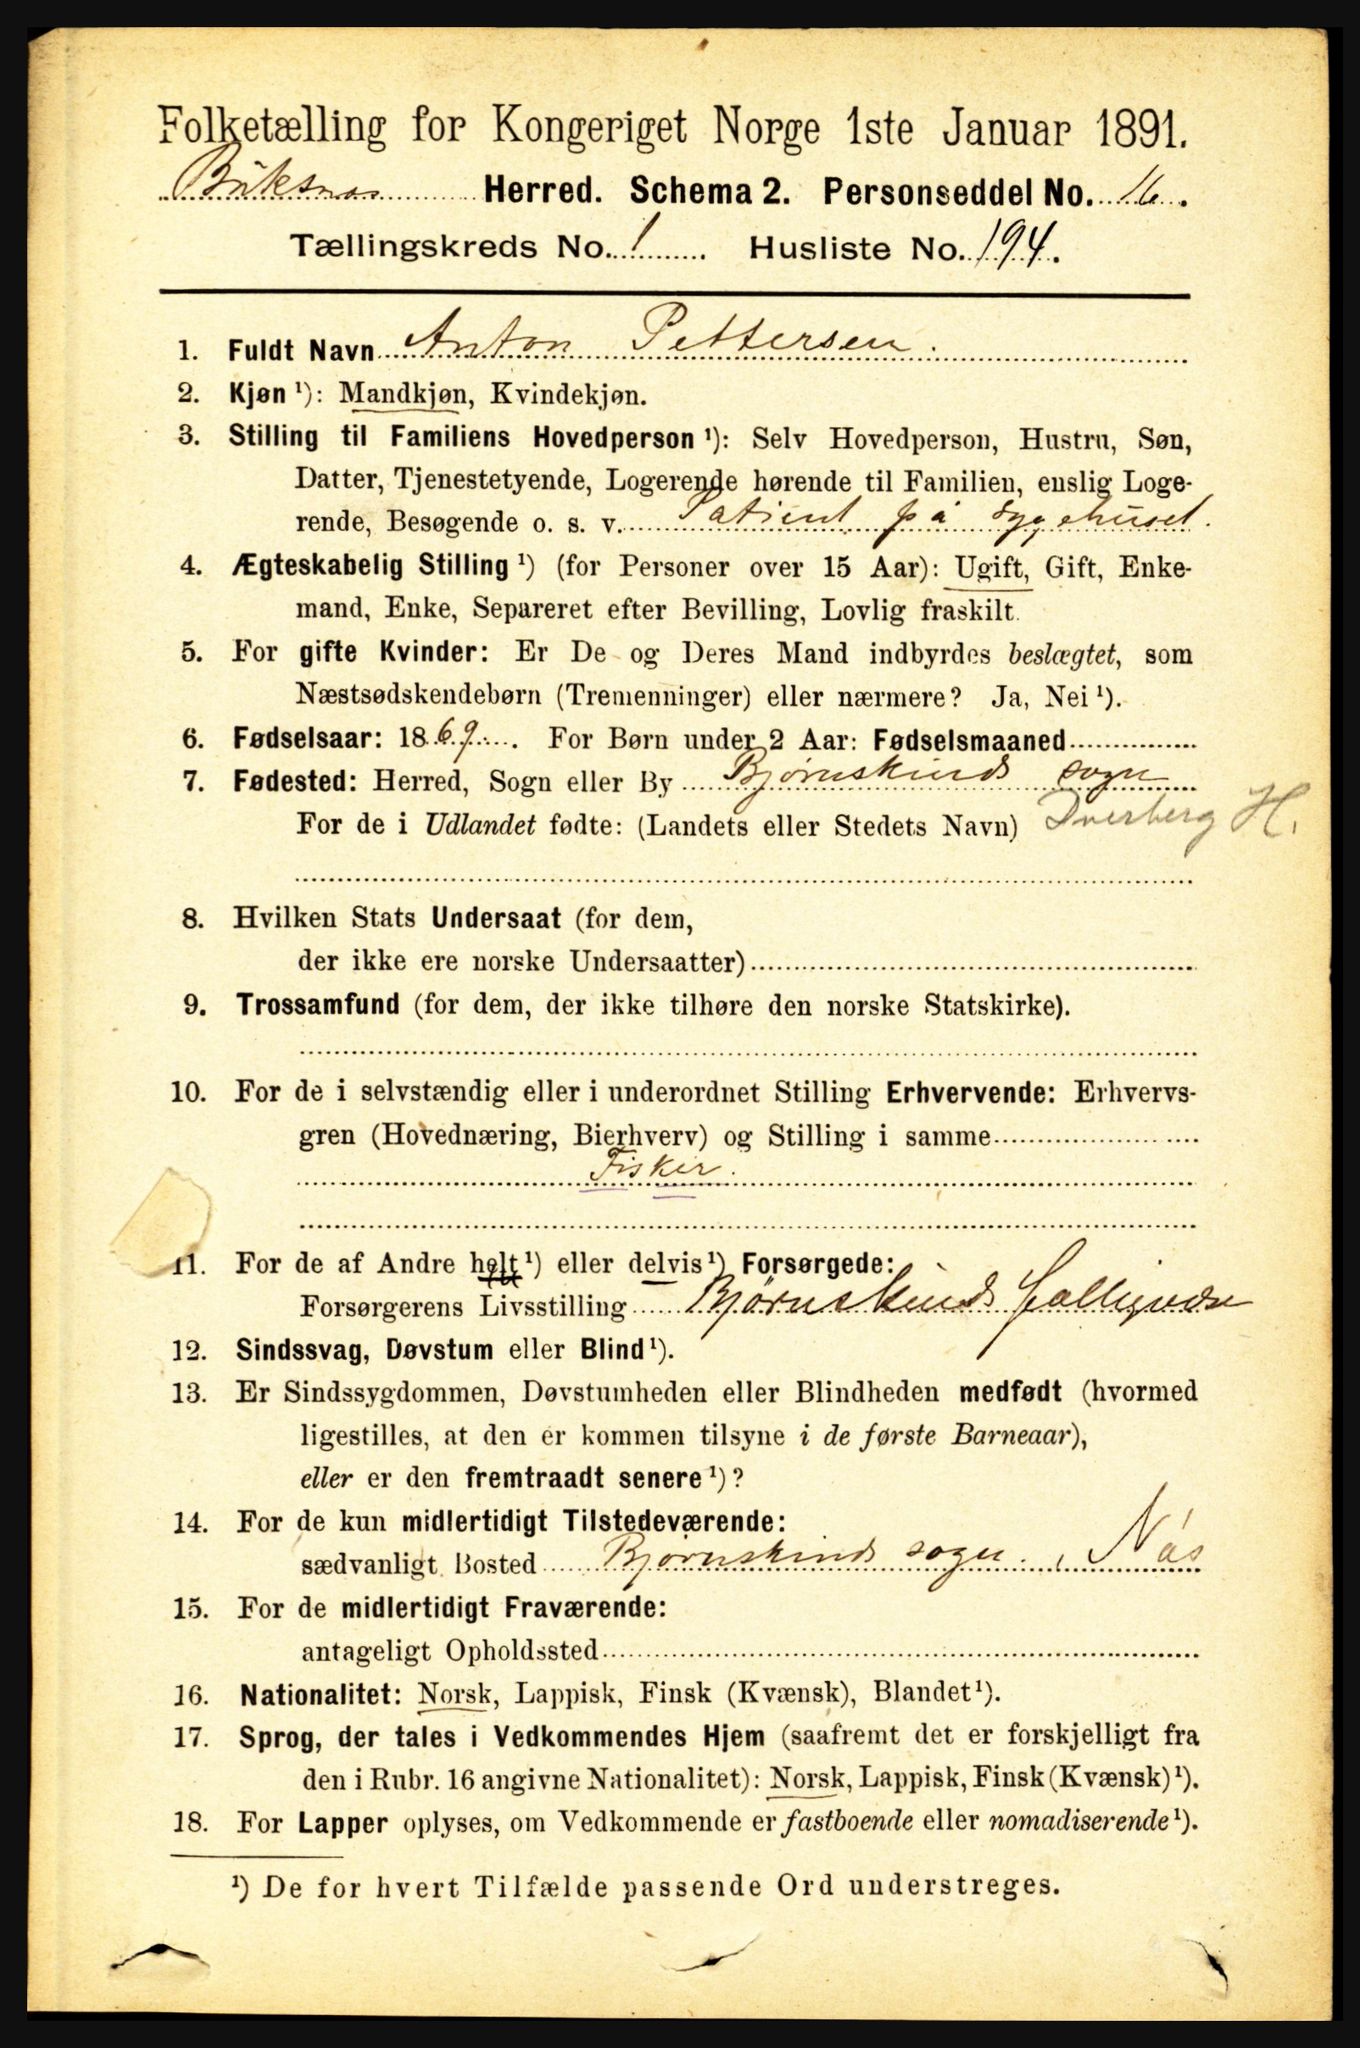 Folketælling for Kongeriget Norge 1ste Januar 1891.
Buksnes Herred. Schema 2. Personseddel No. 16.
Tællingskreds No. 1 Husliste No. 194.
1. Fuldt Navn Anton Pettersen.
2. Kjøn ¹): Mandkjøn, Kvindekjøn.
3. Stilling til Familiens Hovedperson ¹): Selv Hovedperson, Hustru, Søn,
Datter, Tjenestetyende, Logerende hørende til Familien, enslig Loge-
rende, Besøgende o. s. v. Patient på sygehuset.
4. Ægteskabelig Stilling ¹) (for Personer over 15 Aar): Ugift, Gift, Enke-
mand, Enke, Separeret efter Bevilling, Lovlig fraskilt.
5. For gifte Kvinder: Er De og Deres Mand indbyrdes beslægtet, som
Næstsødskendebørn (Tremenninger) eller nærmere? Ja, Nei ¹).
6. Fødselsaar: 1869. For Børn under 2 Aar: Fødselsmaaned
7. Fødested: Herred, Sogn eller By Bjørnskinds sogn
For de i Udlandet fødte: (Landets eller Stedets Navn) Dverberg H.
8. Hvilken Stats Undersaat (for dem,
der ikke ere norske Undersaatter)
9. Trossamfund (for dem, der ikke tilhøre den norske Statskirke).
10. For de i selvstændig eller i underordnet Stilling Erhvervende: Erhvervs-
gren (Hovednæring, Bierhverv) og Stilling i samme
Fisker.
11. For de af Andre helt ¹) eller delvis ¹) Forsørgede:
Forsørgerens Livsstilling Bjørnskinds
12. Sindssvag, Døvstum eller Blind ¹).
13. Er Sindssygdommen, Døvstumheden eller Blindheden medfødt (hvormed
ligestilles, at den er kommen tilsyne i de første Barneaar),
eller er den fremtraadt senere ¹)?
14. For de kun midlertidigt Tilstedeværende:
sædvanligt Bosted Bjørnskinds sogn, Nås
15. For de midlertidigt Fraværende:
antageligt Opholdssted
16. Nationalitet: Norsk, Lappisk, Finsk (Kvænsk), Blandet ¹).
17. Sprog, der tales i Vedkommendes Hjem (saafremt det er forskjelligt fra
den i Rubr. 16 angivne Nationalitet): Norsk, Lappisk, Finsk (Kvænsk) ¹).
18. For Lapper oplyses, om Vedkommende er fastboende eller nomadiserende ¹).
¹) De for hvert Tilfælde passende Ord understreges.